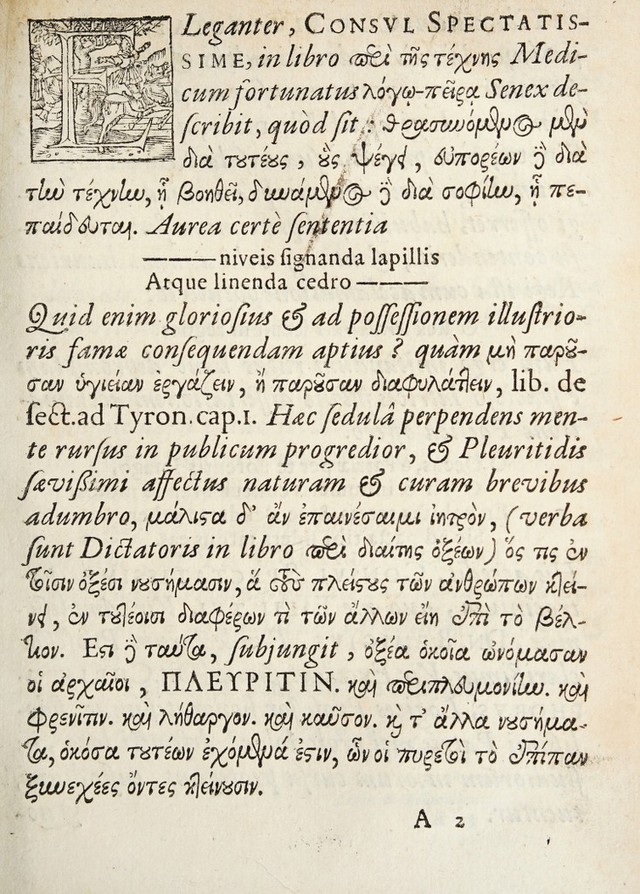 ELeganter, CONSVL SPECTATIS-
SIME, in libro περὶ τῆς τέχνης Medi-
cum fortunatus λόγῳ-πεῖρᾳ Senex de-
scribit, quòd sit: θρασυνόμενος μὲν
διὰ τουτέους, οὓς ψέγει, εὐπορέων δὲ διὰ
τὴν τέχνην, ᾗ βοηθεῖ, δυνάμενος δὲ διὰ σοφίην, ᾗ πε-
παίδευται. Aurea certè sententia
——— niveis signanda lapillis
Atque linenda cedro ———
Quid enim gloriosius & ad possessionem illustrio-
ris famæ consequendam aptius? quàm μὴ παροῦ-
σαν ὑγιείαν ἐργάζειν, ἢ παροῦσαν διαφυλάττειν, lib. de
sect. ad Tyron. cap. 1. Hæc sedulâ perpendens men-
te rursus in publicum progredior, & Pleuritidis
sævißimi affectus naturam & curam brevibus
adumbro, μάλιστα δ' ἂν ἐπαινέσαιμι ἰητρὸν, (verba
sunt Dictatoris in libro περὶ διαίτης ὀξέων) ὅς τις ἐν
τοῖσιν ὀξέσι νουσήμασιν, ἃ τοὺς πλείστους τῶν ἀνθρώπων κτεί-
νει, ἐν τουτέοισι διαφέρων τὶ τῶν ἄλλων εἴη ἐπὶ τὸ βέλ-
τιον. Εστι δὲ ταῦτα, subjungit, ὀξέα ὁκοῖα ὠνόμασαν
οἱ ἀρχαῖοι, ΠΛΕΥΡΙΤΙΝ. καὶ περιπλευμονίην. καὶ
φρενῖτιν. καὶ λήθαργον. καὶ καῦσον. καὶ τ' ἄλλα νουσήμα-
τα, ὁκόσα τουτέων ἐχόμενά ἐστιν, ὧν οἱ πυρετοὶ τὸ ἐπίπαν
ξυνεχέες ὄντες κτείνουσιν.
A 2